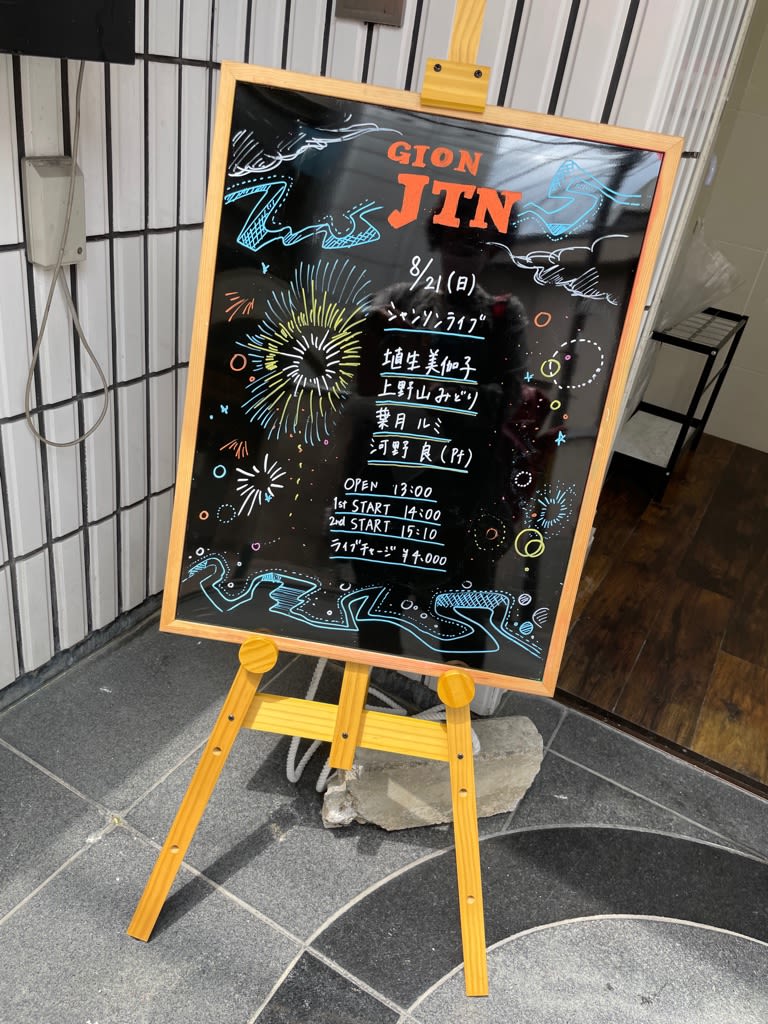 GION
JTN
8/21(日)
シャンソンライブ
埴生美伽子
上野山みどり
葉月ルミ
河野良(Pf)
OPEN 13:00
1st START 14:00
2nd START 15:10
ライブチャージ ¥4,000